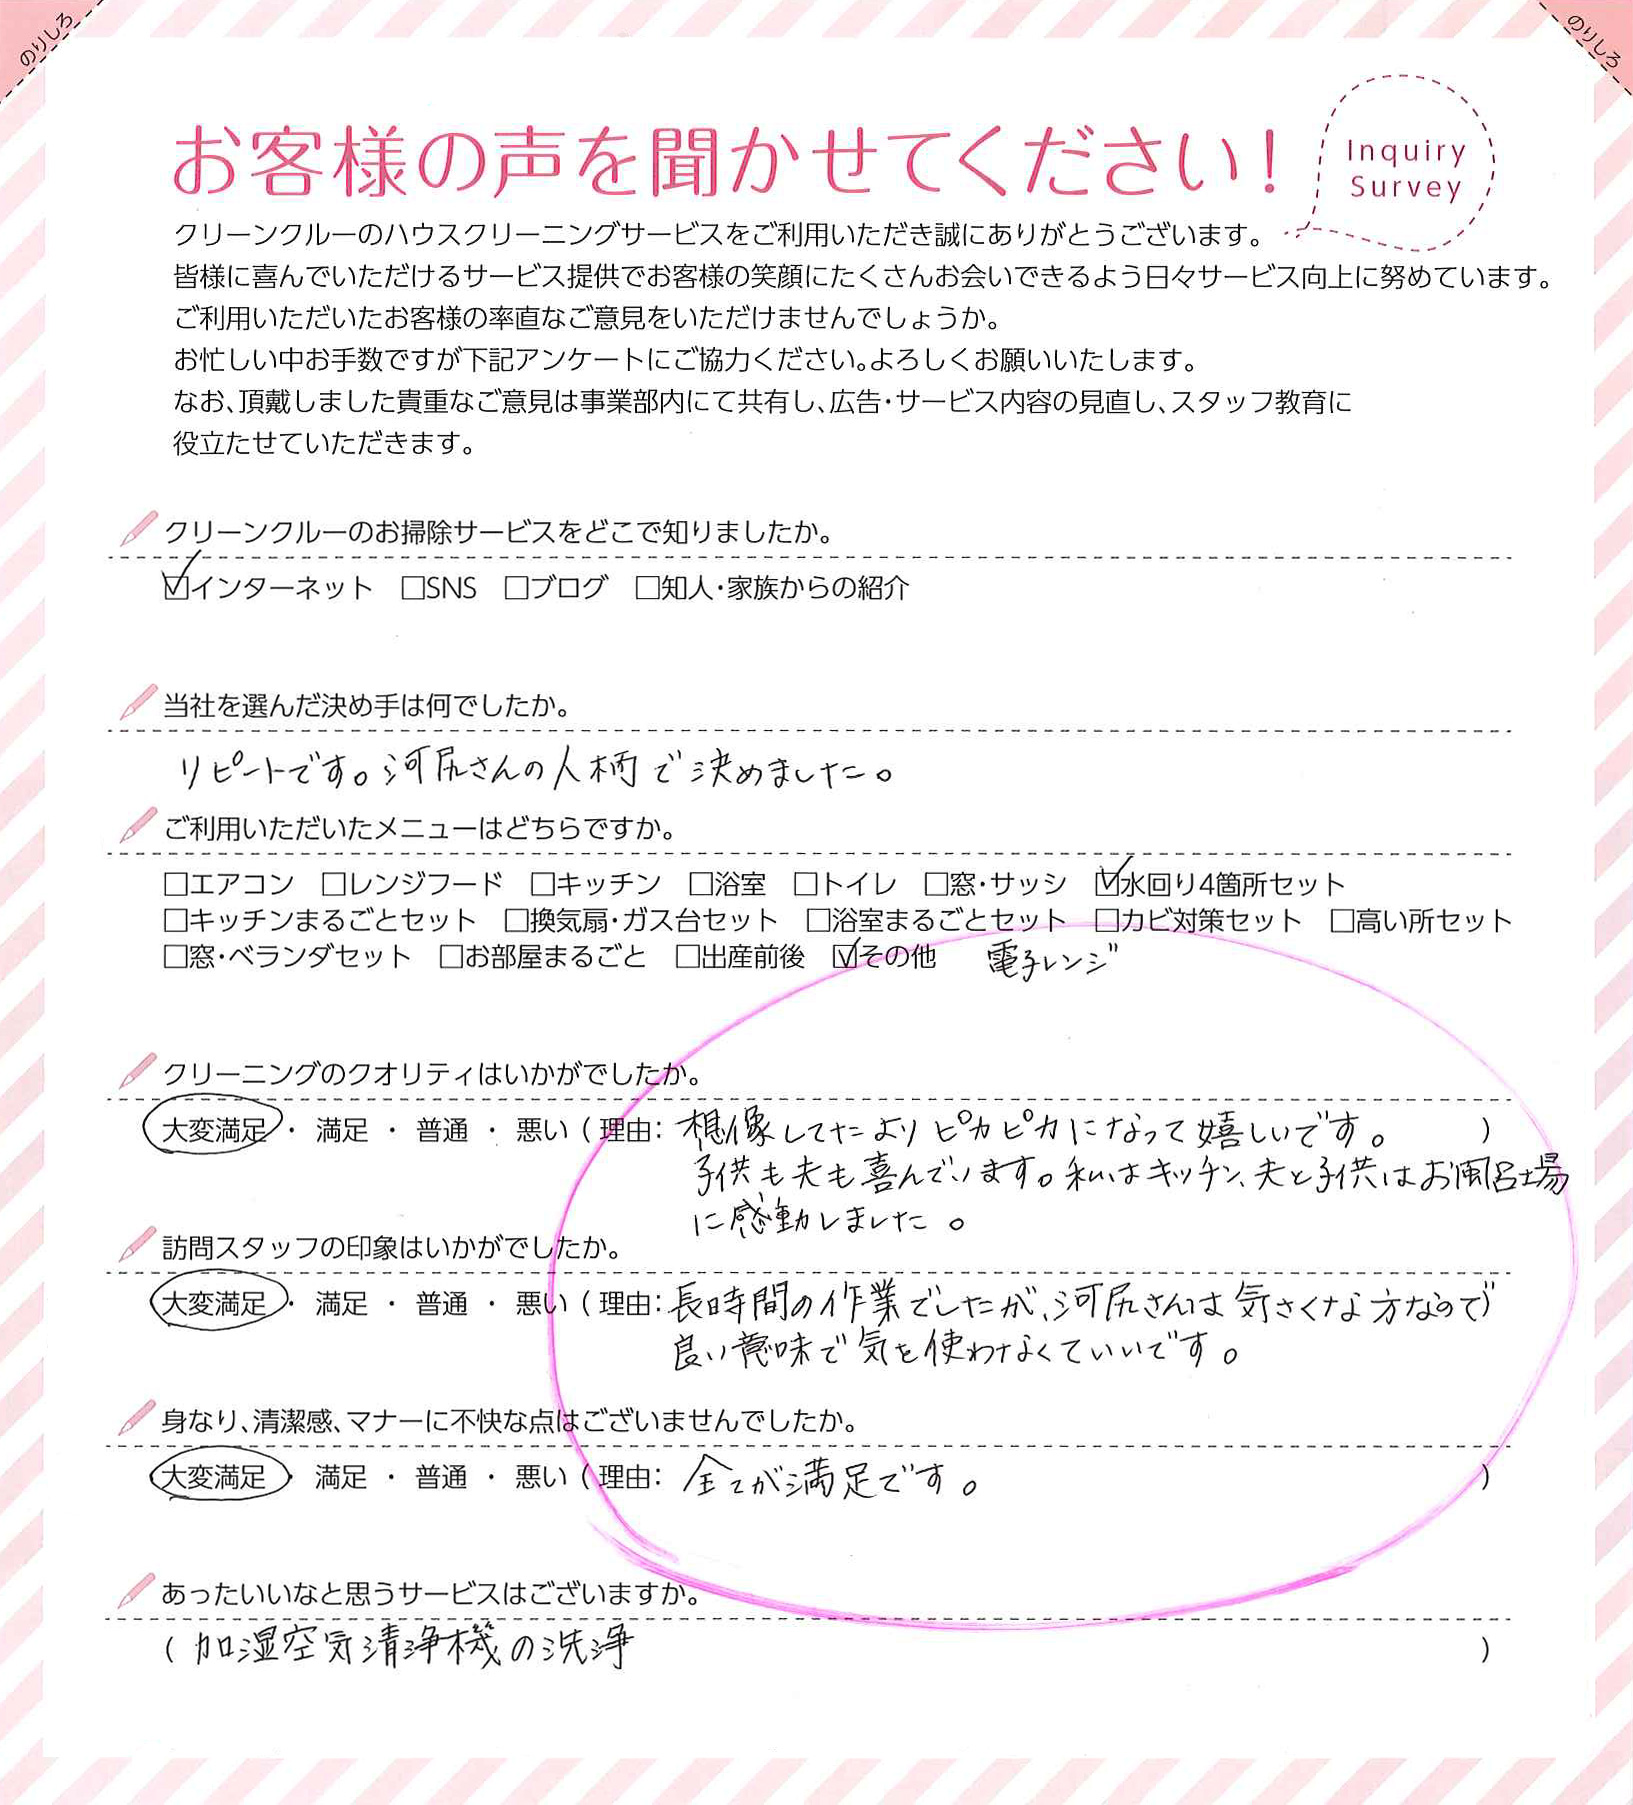 のりしろ
のりしろ
お客様の声を聞かせてください!
Inquiry
Survey
クリーンクルーのハウスクリーニングサービスをご利用いただき誠にありがとうございます。
皆様に喜んでいただけるサービス提供でお客様の笑顔にたくさんお会いできるよう日々サービス向上に努めています。
ご利用いただいたお客様の率直なご意見をいただけませんでしょうか。
お忙しい中お手数ですが下記アンケートにご協力ください。よろしくお願いいたします。
なお、頂戴しました貴重なご意見は事業部内にて共有し、広告・サービス内容の見直し、スタッフ教育に
役立たせていただきます。
クリーンクルーのお掃除サービスをどこで知りましたか。
☑インターネット □SNS □ブログ □知人・家族からの紹介
当社を選んだ決め手は何でしたか。
リピートです。河尻さんの人柄で決めました。
ご利用いただいたメニューはどちらですか。
□エアコン □レンジフード □キッチン □浴室 □トイレ □窓・サッシ ☑水回り4箇所セット
□キッチンまるごとセット □換気扇・ガス台セット □浴室まるごとセット □カビ対策セット □高い所セット
□窓・ベランダセット □お部屋まるごと □出産前後 ☑その他 電子レンジ
クリーニングのクオリティはいかがでしたか。
大変満足 ・ 満足 ・ 普通 ・ 悪い ( 理由: 想像してたよりピカピカになって嬉しいです。 )
子供も夫も喜んでいます。私はキッチン、夫と子供はお風呂場
に感動しました。
訪問スタッフの印象はいかがでしたか。
大変満足 ・ 満足 ・ 普通 ・ 悪い ( 理由: 長時間の作業でしたが、河尻さんは気さくな方なので )
良い意味で気を使わなくていいです。
身なり、清潔感、マナーに不快な点はございませんでしたか。
大変満足 ・ 満足 ・ 普通 ・ 悪い ( 理由: 全てが満足です。 )
あったいいなと思うサービスはございますか。
( 加湿空気清浄機の洗浄 )